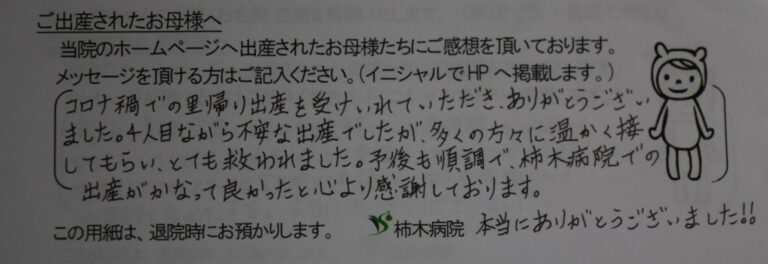 ご出産されたお母様へ
当院のホームページへ出産されたお母様たちにご感想を頂いております。
メッセージを頂ける方はご記入ください。(イニシャルでHPへ掲載します。)
コロナ禍での里帰り出産を受けいれていただき、ありがとうござい
ました。4人目ながら不安な出産でしたが、多くの方々に温かく接
してもらい、とても救われました。予後も順調で、柿木病院での
出産がかなって良かったと心より感謝しております。
この用紙は、退院時にお預かりします。 柿木病院 本当にありがとうございました!!